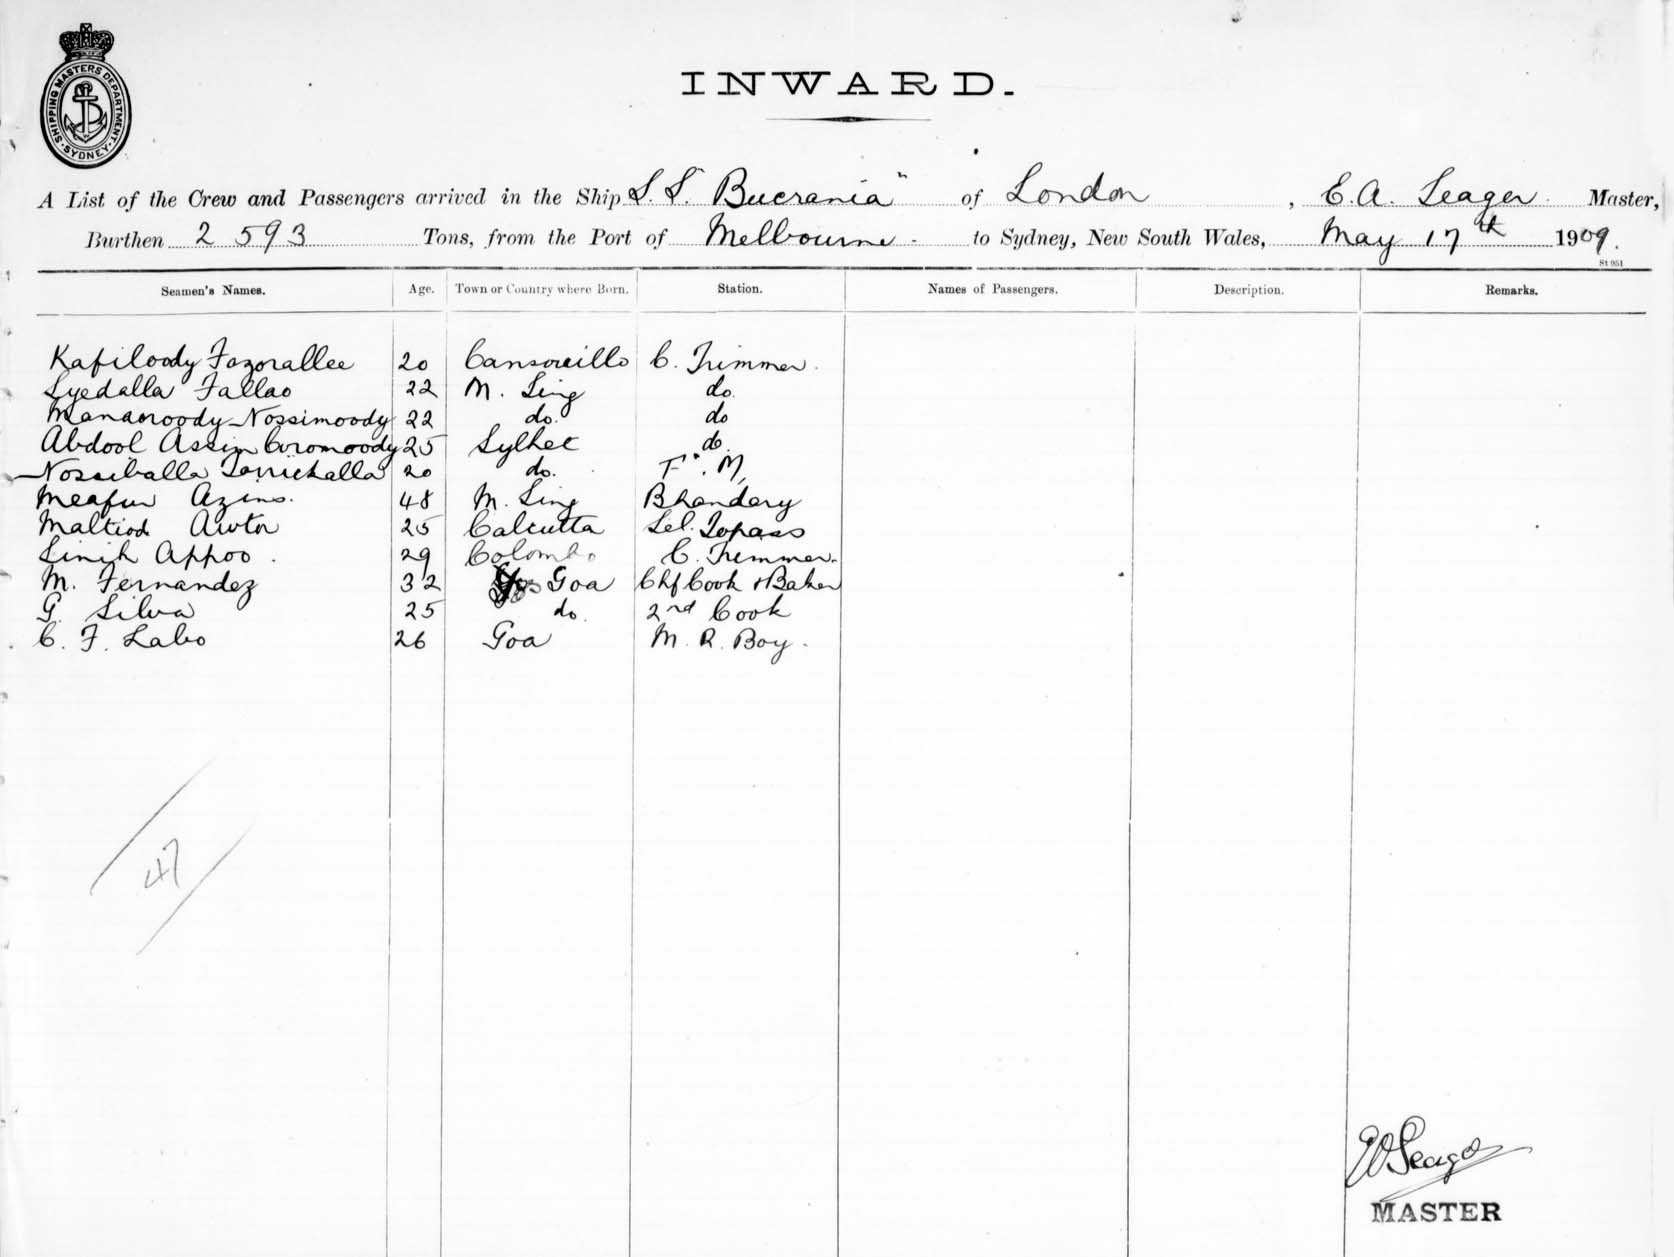 SHIPPING MASTERS DEPARTMENT. SYDNEY.
INWARD.
A List of the Crew and Passengers arrived in the Ship S.S. "Bucrania" of London, E.A. Seager. Master,
Burthen 2593 Tons, from the Port of Melbourne. to Sydney, New South Wales, May 17th 1909.
St 951
Seamen's Names. Age. Town or Country where Born. Station. Names of Passengers. Description. Remarks.
Kafiloody Fazorallee 20 C. Trimmer.
Syedalla Fallao 22 M. Sing do.
Nossimoody 22 do. do
Abdool Assim 25 Sylhet do.
Nossiballa 20 do. F". M,
Meafur Azims. 48 M. Sing Bhandary
Awtar 25 Calcutta Sel. Topass
Sinih Appoo. 29 Colombo C. Trimmer.
M. Fernandez 32 Goa Chf Cook & Baker
G. Silva 25 do. 2nd Cook
C. F. Labo 26 Goa M. R. Boy.
47
EASeager
MASTER